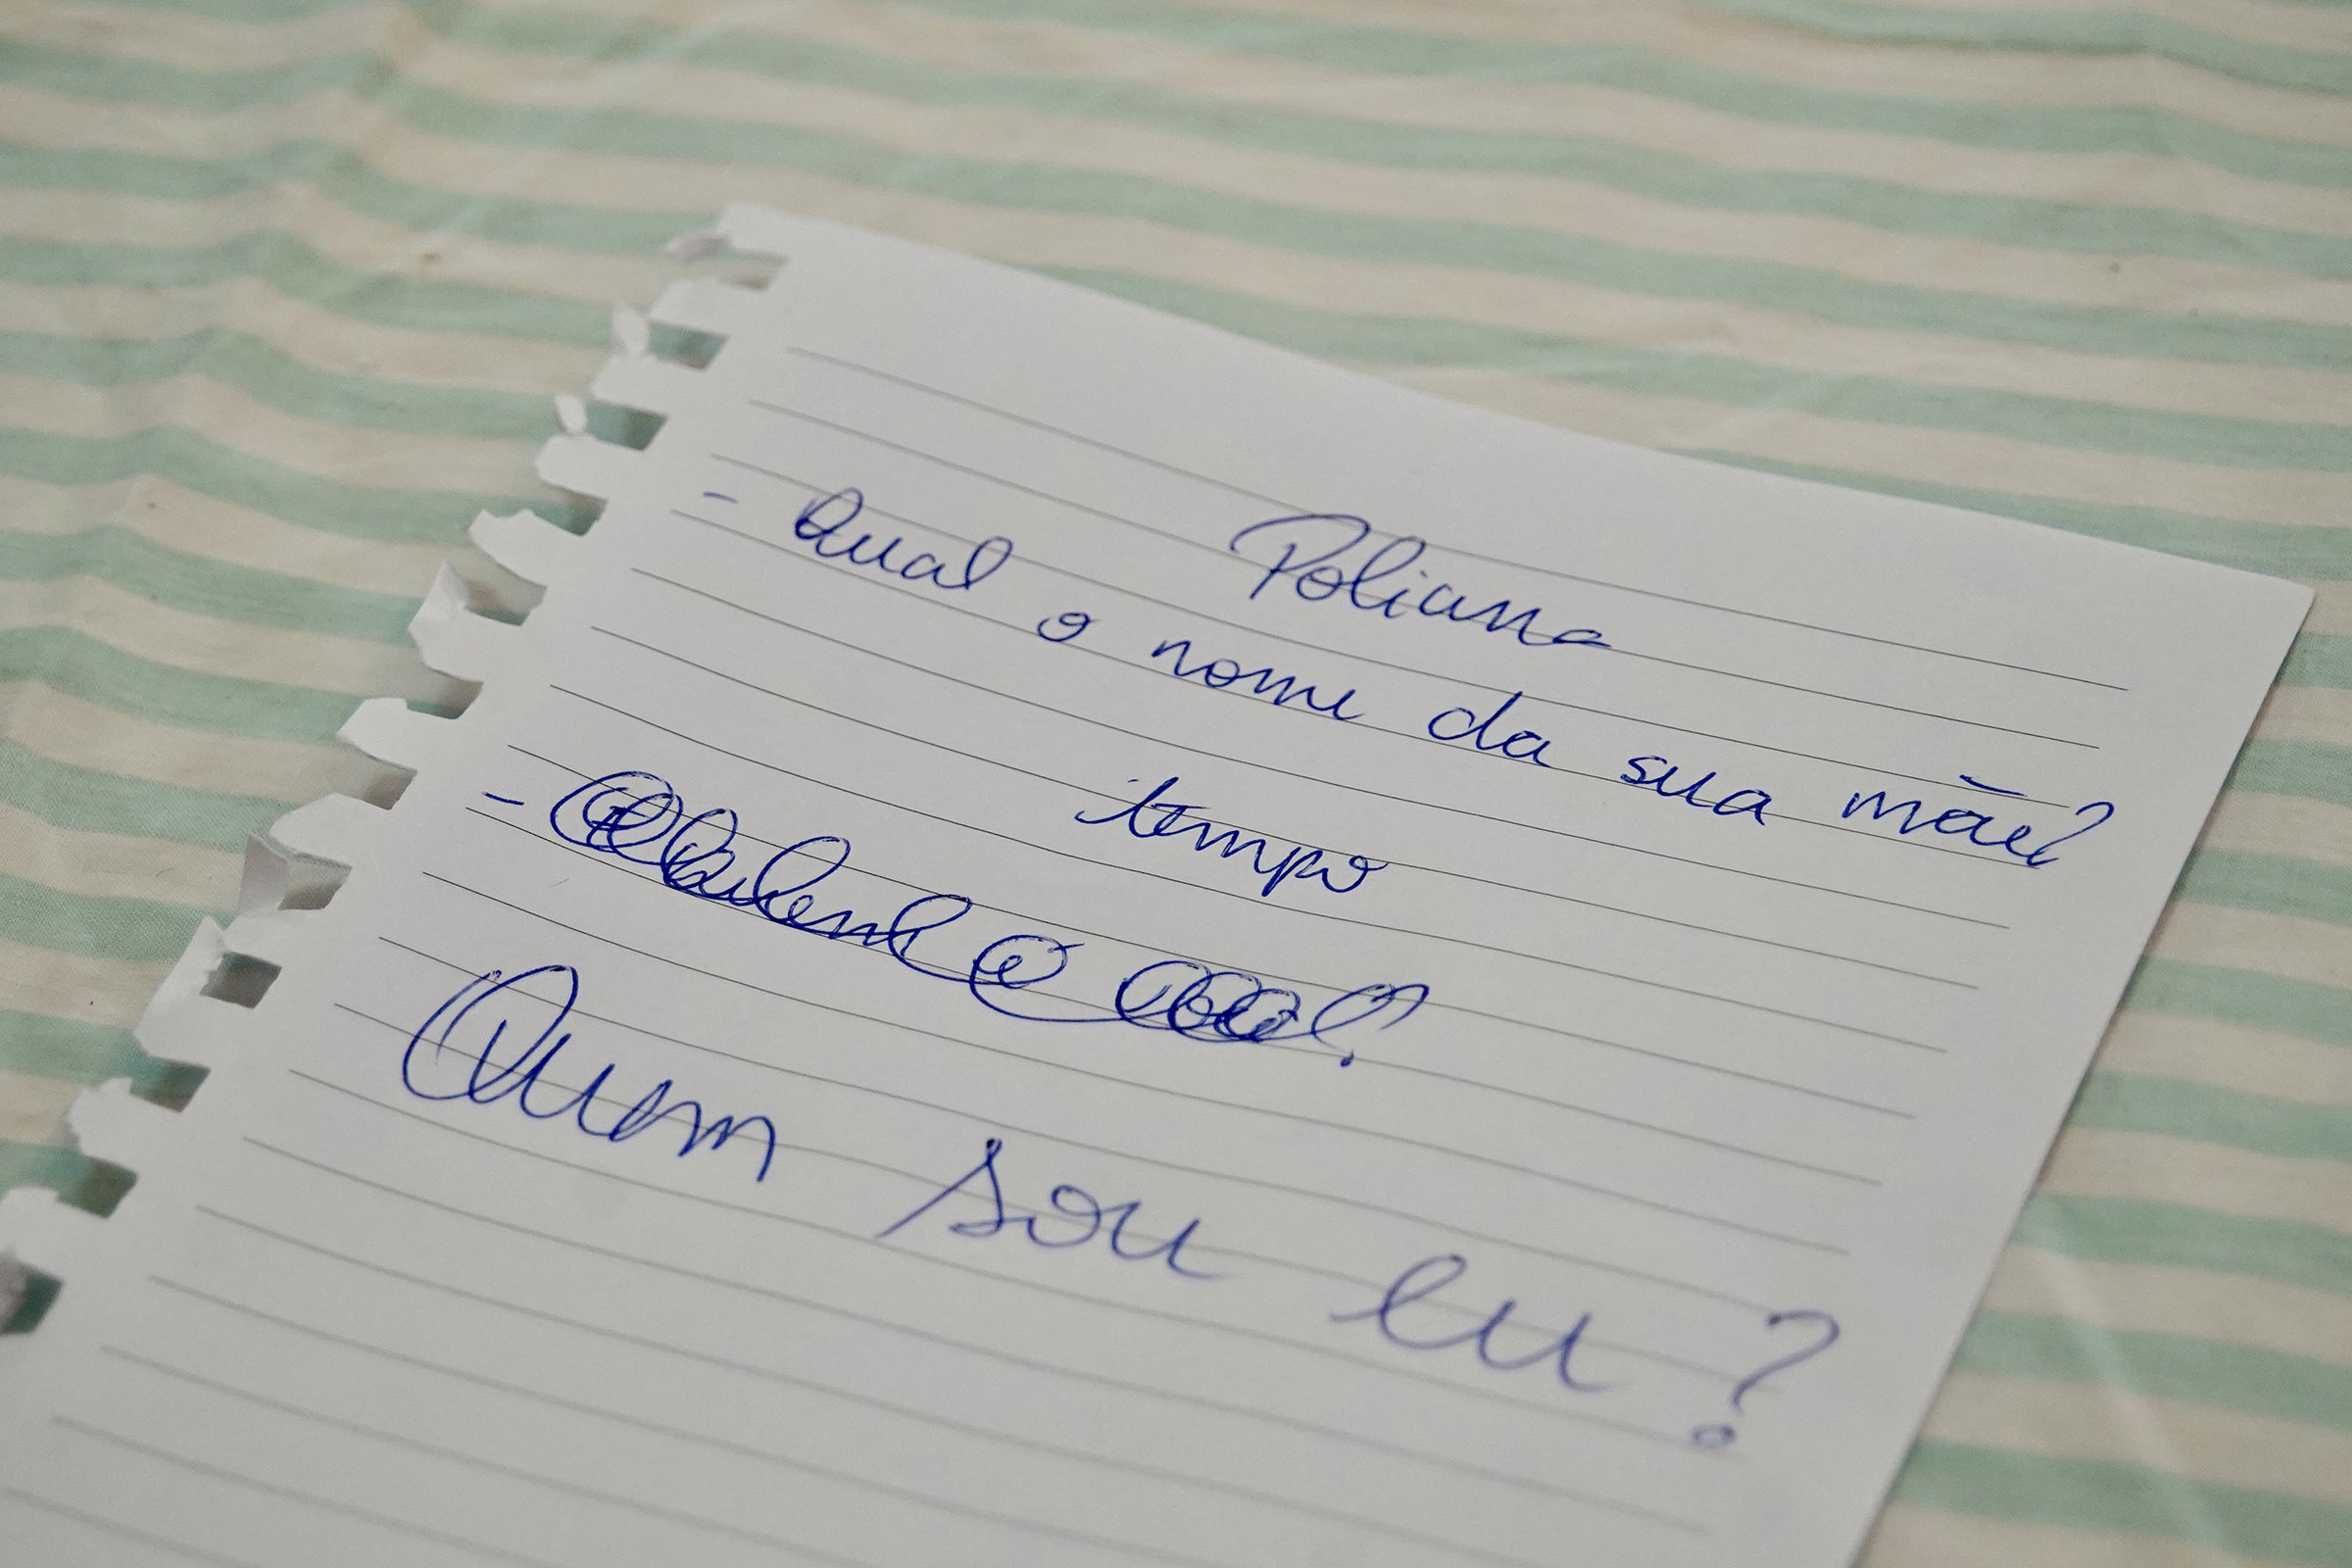 Poliana
- Qual o nome da sua mãe?
tempo
-
Quem sou eu?